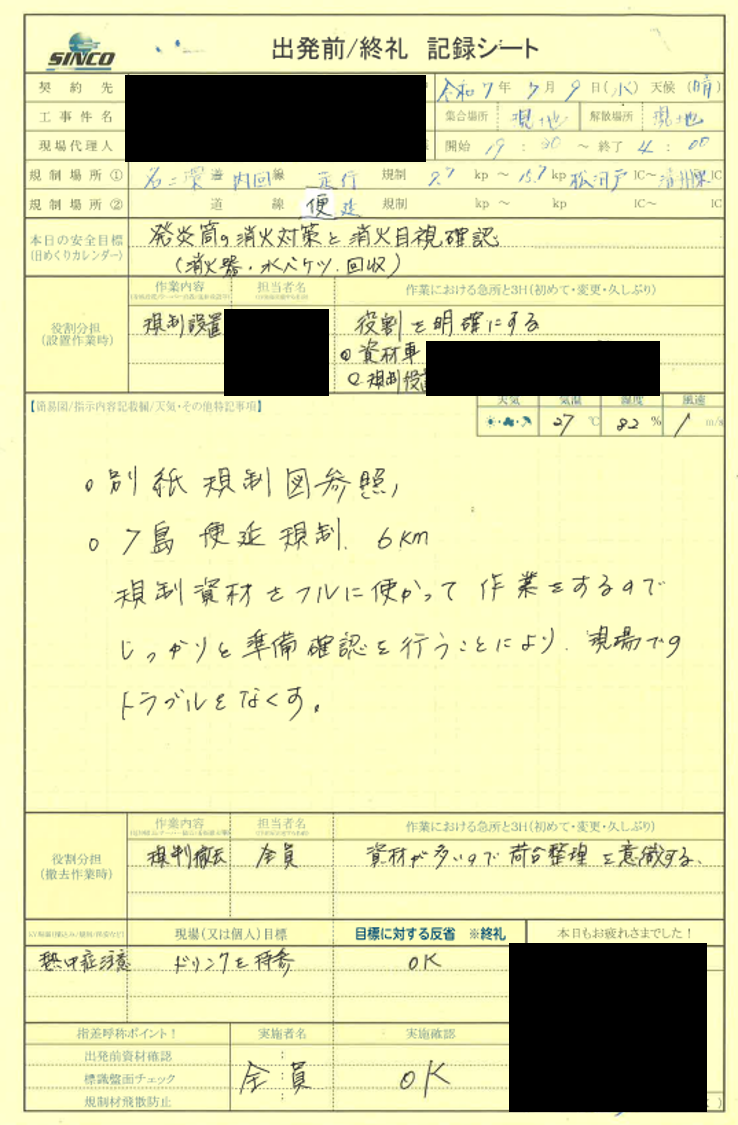 SINCO
出発前/終礼 記録シート
契約先 令和7年7月9日(水) 天候(晴)
工事件名 集合場所 現地 解散場所 現地
現場代理人 開始 19:30 ～終了 4:00
規制場所① 名二環道 内回線 走行 規制 7.7kp～15.7kp 松河戸IC～清州東IC
規制場所② 道 線 便延 規制 kp～ kp IC～ IC
本日の安全目標 発炎筒の消火対策と消火目視確認
(日めくりカレンダー) (消火器・水バケツ.回収)
作業内容 担当者名 作業における急所と3H(初めて・変更・久しぶり)
役割分担 規制設置 役割を明確にする
(設置作業時) ◎資材車
規制設置
【簡易図/指示内容記載欄/天気・その他特記事項】
天気 気温 湿度 風速
27℃ 82% 1m/s
○別紙規制図参照
○7島 便延規制. 6km
規制資材をフルに使かって作業をするので
しっかりと準備確認を行うことにより.現場での
トラブルをなくす。
作業内容 担当者名 作業における急所と3H(初めて・変更・久しぶり)
役割分担 規制撤去 全員 資材が多いので荷台整理を意識する、
(撤去作業時)
現場(又は個人)目標 目標に対する反省 ※終礼 本日もお疲れさまでした！
熱中症注意 ドリンクを持参 OK
指差呼称ポイント！ 実施者名 実施確認
出発前資材確認
標識盤面チェック 全員 OK
規制材飛散防止